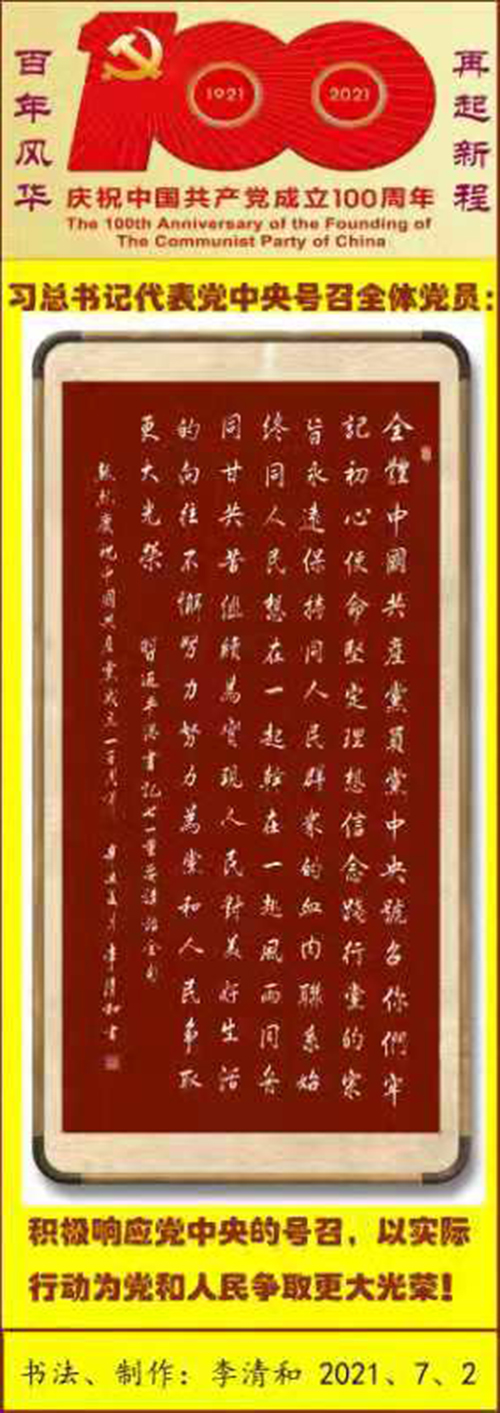 百年风华
100
1921
2021
再起新程
庆祝中国共产党成立100周年
The 100th Anniversary of the Founding of
The Communist Party of China
习总书记代表党中央号召全体党员：
全體中國共產黨員黨中央號召你們牢
記初心使命堅定理想信念踐行黨的宗
旨永遠保持同人民群衆的血肉聯系始
终同人民想在一起幹在一起風雨同舟
同甘共苦继續為實現人民對美好生活
的向往不懈努力努力為黨和人民争取
更大光榮 習近平总書記七一重要講話金句
慶祝中國共產黨成立一百周年 李清和書
积极响应党中央的号召，以实际
行动为党和人民争取更大光荣！
书法、制作：李清和 2021、7、2